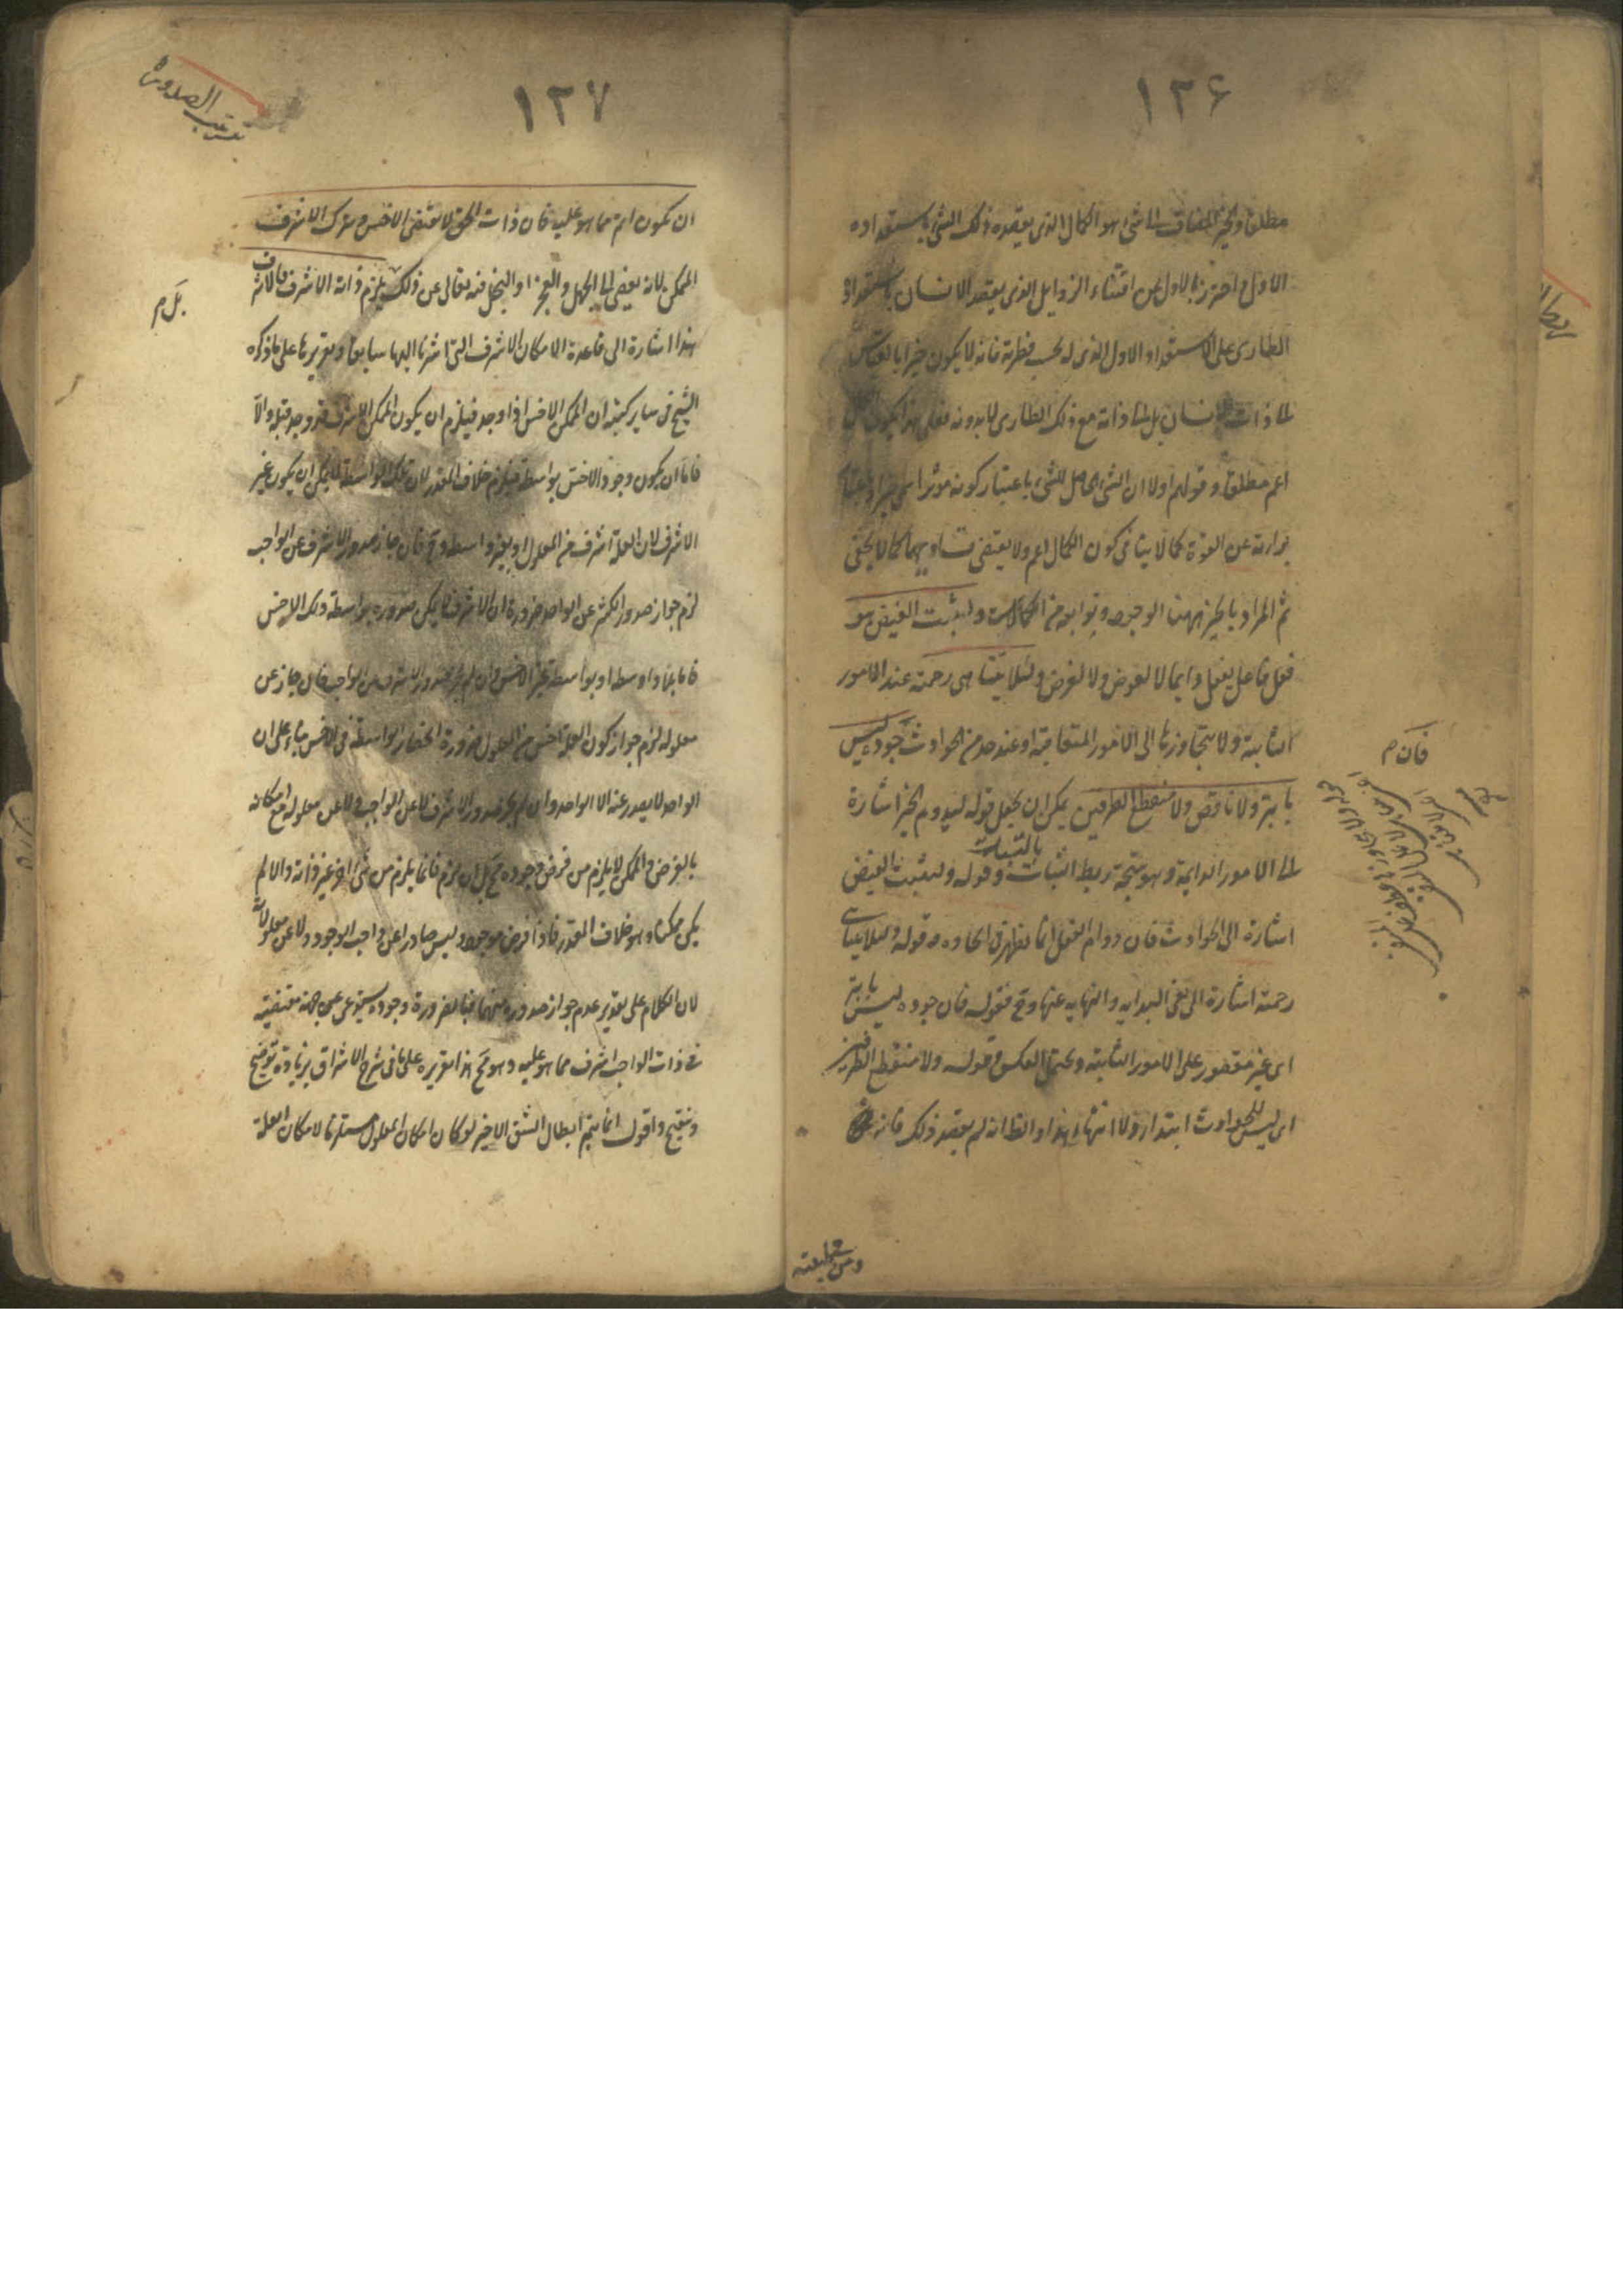 ١٢۶
مطلقا والخير المضاف الى شئ هو الكمال الذى يقصده ذلك الشئ باستعداده
الاول واحترز بالاول عن اقتناء الرذايل الذى يقصد الانسان باستعداد
الطارى على الاستعداد الاول الذى له بحسب فطرته فانه لا يكون خيرا بالقياس
الى ذات الانسان بل الى ذاته مع ذلك الطارى لا بدونه فعلى هذا يكون
اعم مطلقا وقولهم اولا ان الشئ الحاصل للشئ باعتبار كونه مؤثرا سمى خيرا وباعتبار
براءته عن القوة كمالا ينافى كون الكمال اعم ولا يقتضى تساويهما كما لا يخفى
ثم المراد بالخير ههنا الوجود وتوابعه من الكمالات وليثبت الفيض هو
فعل فاعل يفعل دايما لا لعوض ولا لغرض ولئلا يتناهى رحمته عند الامور
الثابتة ولا يتجاوزها الى الامور المتعاقبة او عند حد من الحوادث جوده ليس
بابتر ولا ناقص ولا منقطع الطرفين يمكن ان يجعل قوله ليدوم الخير اشارة
الى الامور الدايمة وهو نتيجة ربط الثبات بالثبات وقوله وليثبت الفيض
اشارة الى الحوادث فان دوام الفعل انما يظهر فى وقوله ولئلا يتناهى
رحمته اشارة الى نفى البداية والنهاية عنها وح فقوله فان جوده ليس بابتر
اى غير مقصور على الامور الثابتة ويحتمل العكس وقوله ولا منقطع الطرفين
اى ليس للحوادث ابتداء ولا انتهاء هذا والظ انه لم يقصد ذلك فانه
فان م
١٢٧
ترتيب الصدور
ان يكون اتم مما هو عليه فان ذات الحق لا يقتضى الاخس ويترك الاشرف
الممكن لانه يفضى الى الجهل والعجز او البخل فيه تعالى عن ذلك بل يلزم ذاته الاشرف فالاشرف
هذا اشارة الى قاعدة الامكان الاشرف التى اشرنا اليها سابقا وتقريرها على ما ذكره
الشيخ فى ساير كتبه ان الممكن الاخس اذا وجد فيلزم ان يكون الممكن الاشرف قد وجد قبله والا
فاما ان يكون وجود الاخس بواسطة فيلزم خلاف المقدر لان تلك الواسطة لا يمكن ان يكون غير
الاشرف لان العلة اشرف من المعلول او بغير واسطة وح فان جاز صدور الاشرف عن الواجب
لزم جواز صدور الكثير عن الواحد ضرورة ان الاشرف لا يمكن صدوره بواسطة ذلك الاخس
فاما بلا واسطة او بواسطة غير الاخس وان لم يجز صدور الاشرف من الواجب فان جاز عن
معلوله لزم جواز كون العلة اخس من المعلول ضرورة انحصار الواسطة فى الاخس بناء على ان
الواحد لا يصدر عنه الا الواحد وان لم يجز صدور الاشرف لا عن الواجب ولا عن معلوله مع امكانه
بالفرض والممكن لا يلزم من فرض وجوده مح بل ان لزم فانما يلزم من شئ اخر غير ذاته والا لم
يكن ممكنا وهو خلاف المقدر فاذا فرض موجودا وليس صادرا عن واجب الوجود ولا عن معلولاته
لان الكلام على تقدير عدم جواز صدوره منهما فبالضرورة وجوده يستدعى جهة مقتضية
فى ذات الواجب اشرف مما هو عليه وهو مح هذا تقريره على ما فى شرح الاشراق بزيادة توضيح
وتنقيح واقول انما يتم ابطال الشق الاخير لو كان امكان المعلول مستلزما لامكان العلة
بل م